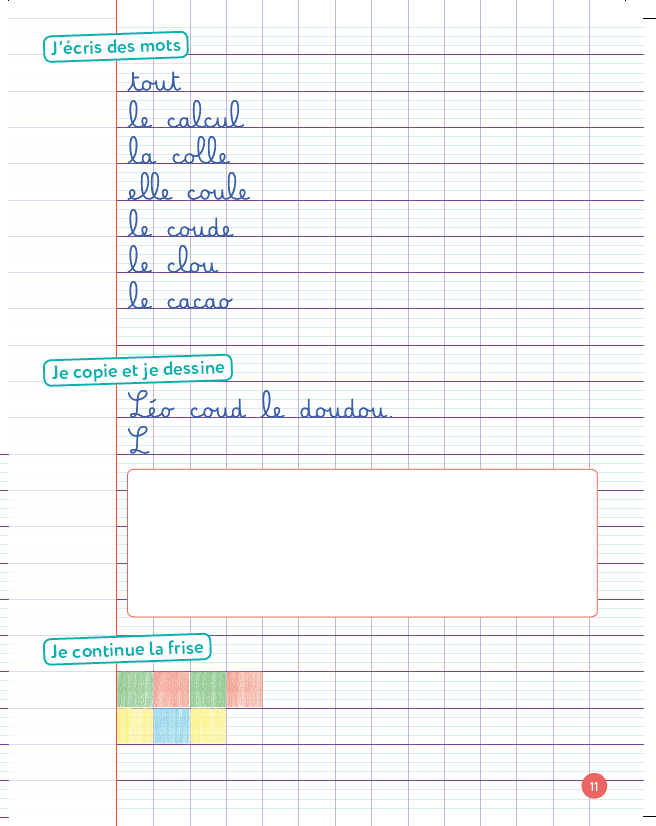 J'écris des mots
tout
le calcul
la colle
elle coule
le coude
le clou
le cacao
Je copie et je dessine
Léo coud le doudou.
L
Je continue la frise
11